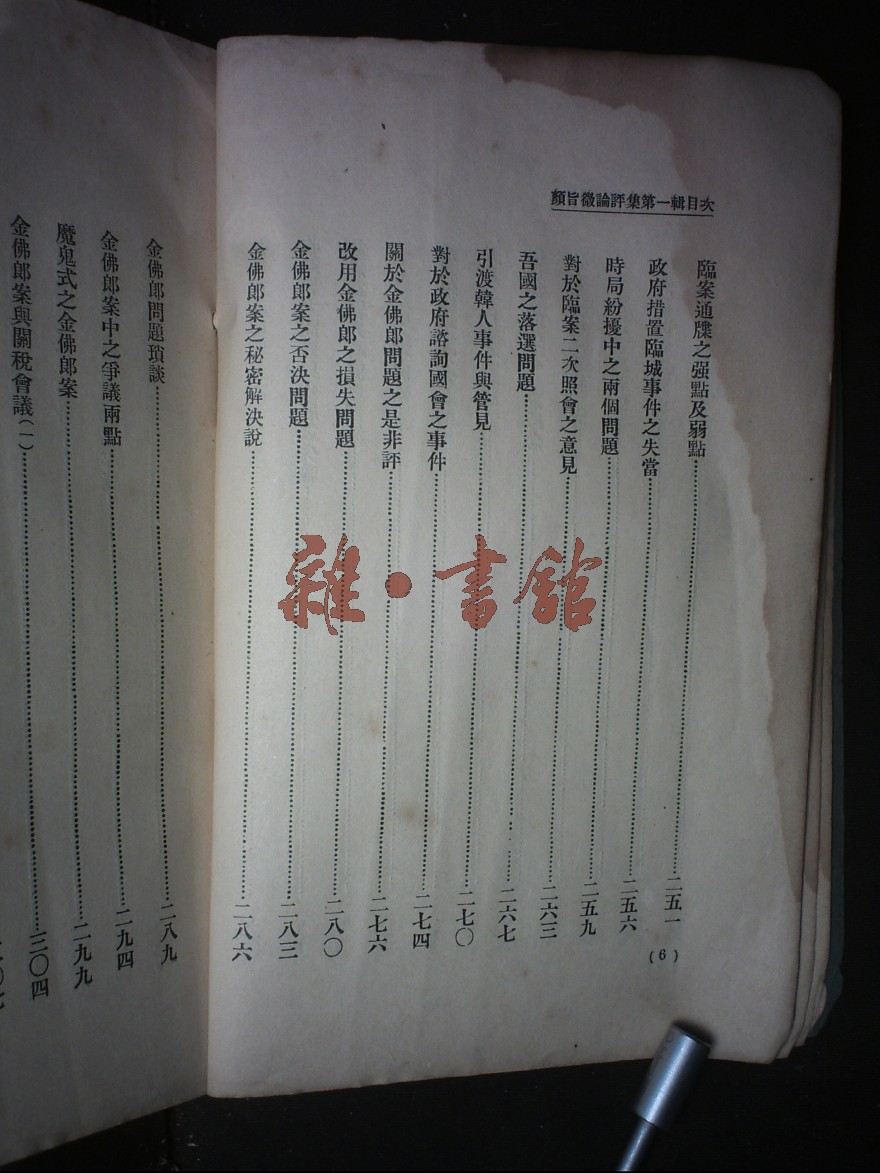 顏旨微論評集第一輯目次
臨案通牒之强點及弱點……二五一
政府措置臨城事件之失當……二五六
時局紛擾中之兩個問題……二五九
對於臨案二次照會之意見……二六三
吾國之落選問題……二六七
引渡韓人事件與管見……二七〇
對於政府諮詢國會之事件……二七四
關於金佛郎問題之是非評……二七六
改用金佛郎之損失問題……二八〇
金佛郎案之否決問題……二八三
金佛郎案之秘密解決說……二八六
(6)
金佛郎問題瑣談……二八九
金佛郎案中之爭議兩點……二九四
魔鬼式之金佛郎案……二九九
金佛郎案與關稅會議(一)……三〇四
雜·書館